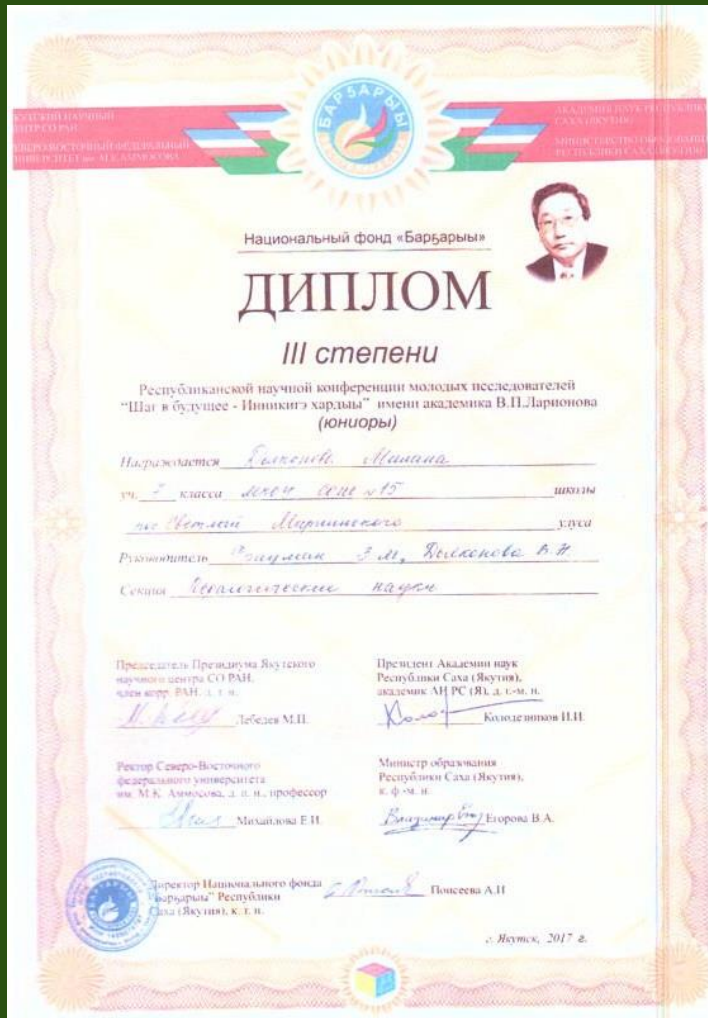 ЯКУТСКИЙ НАУЧНЫЙ
ЦЕНТР СО РАН
СЕВЕРО-ВОСТОЧНЫЙ ФЕДЕРАЛЬНЫЙ
УНИВЕРСИТЕТ им. М.К.АММОСОВА
БАРҔАРЫЫ
АКАДЕМИЯ НАУК РЕСПУБЛИКИ
САХА (ЯКУТИЯ)
МИНИСТЕРСТВО ОБРАЗОВАНИЯ
РЕСПУБЛИКИ САХА (ЯКУТИЯ)
Национальный фонд «Барҕарыы»
ДИПЛОМ
III степени
Республиканской научной конференции молодых исследователей
“Шаг в будущее - Инникигэ хардыы” имени академика В.П.Ларионова
(юниоры)
Награждается Милана
уч. 7 класса МКОУ СОШ №15 школы
пос Светлый Мирнинского улуса
Руководитель З.М., В.Н
Секция науки
Председатель Президиума Якутского
научного центра СО РАН,
член корр. РАН, д. т. н.
Лебедев М.П.
Президент Академии наук
Республики Саха (Якутия),
академик АН РС (Я), д. г.-м. н.
Колодезников И.И.
Ректор Северо-Восточного
федерального университета
им. М.К. Аммосова, д. п. н., профессор
Михайлова Е.И.
Министр образования
Республики Саха (Якутия),
к. ф.-м. н.
Егорова В.А.
Директор Национального фонда
“Барҕарыы” Республики
Саха (Якутия), к. т. н.
Понсеева А.И
г. Якутск, 2017 г.